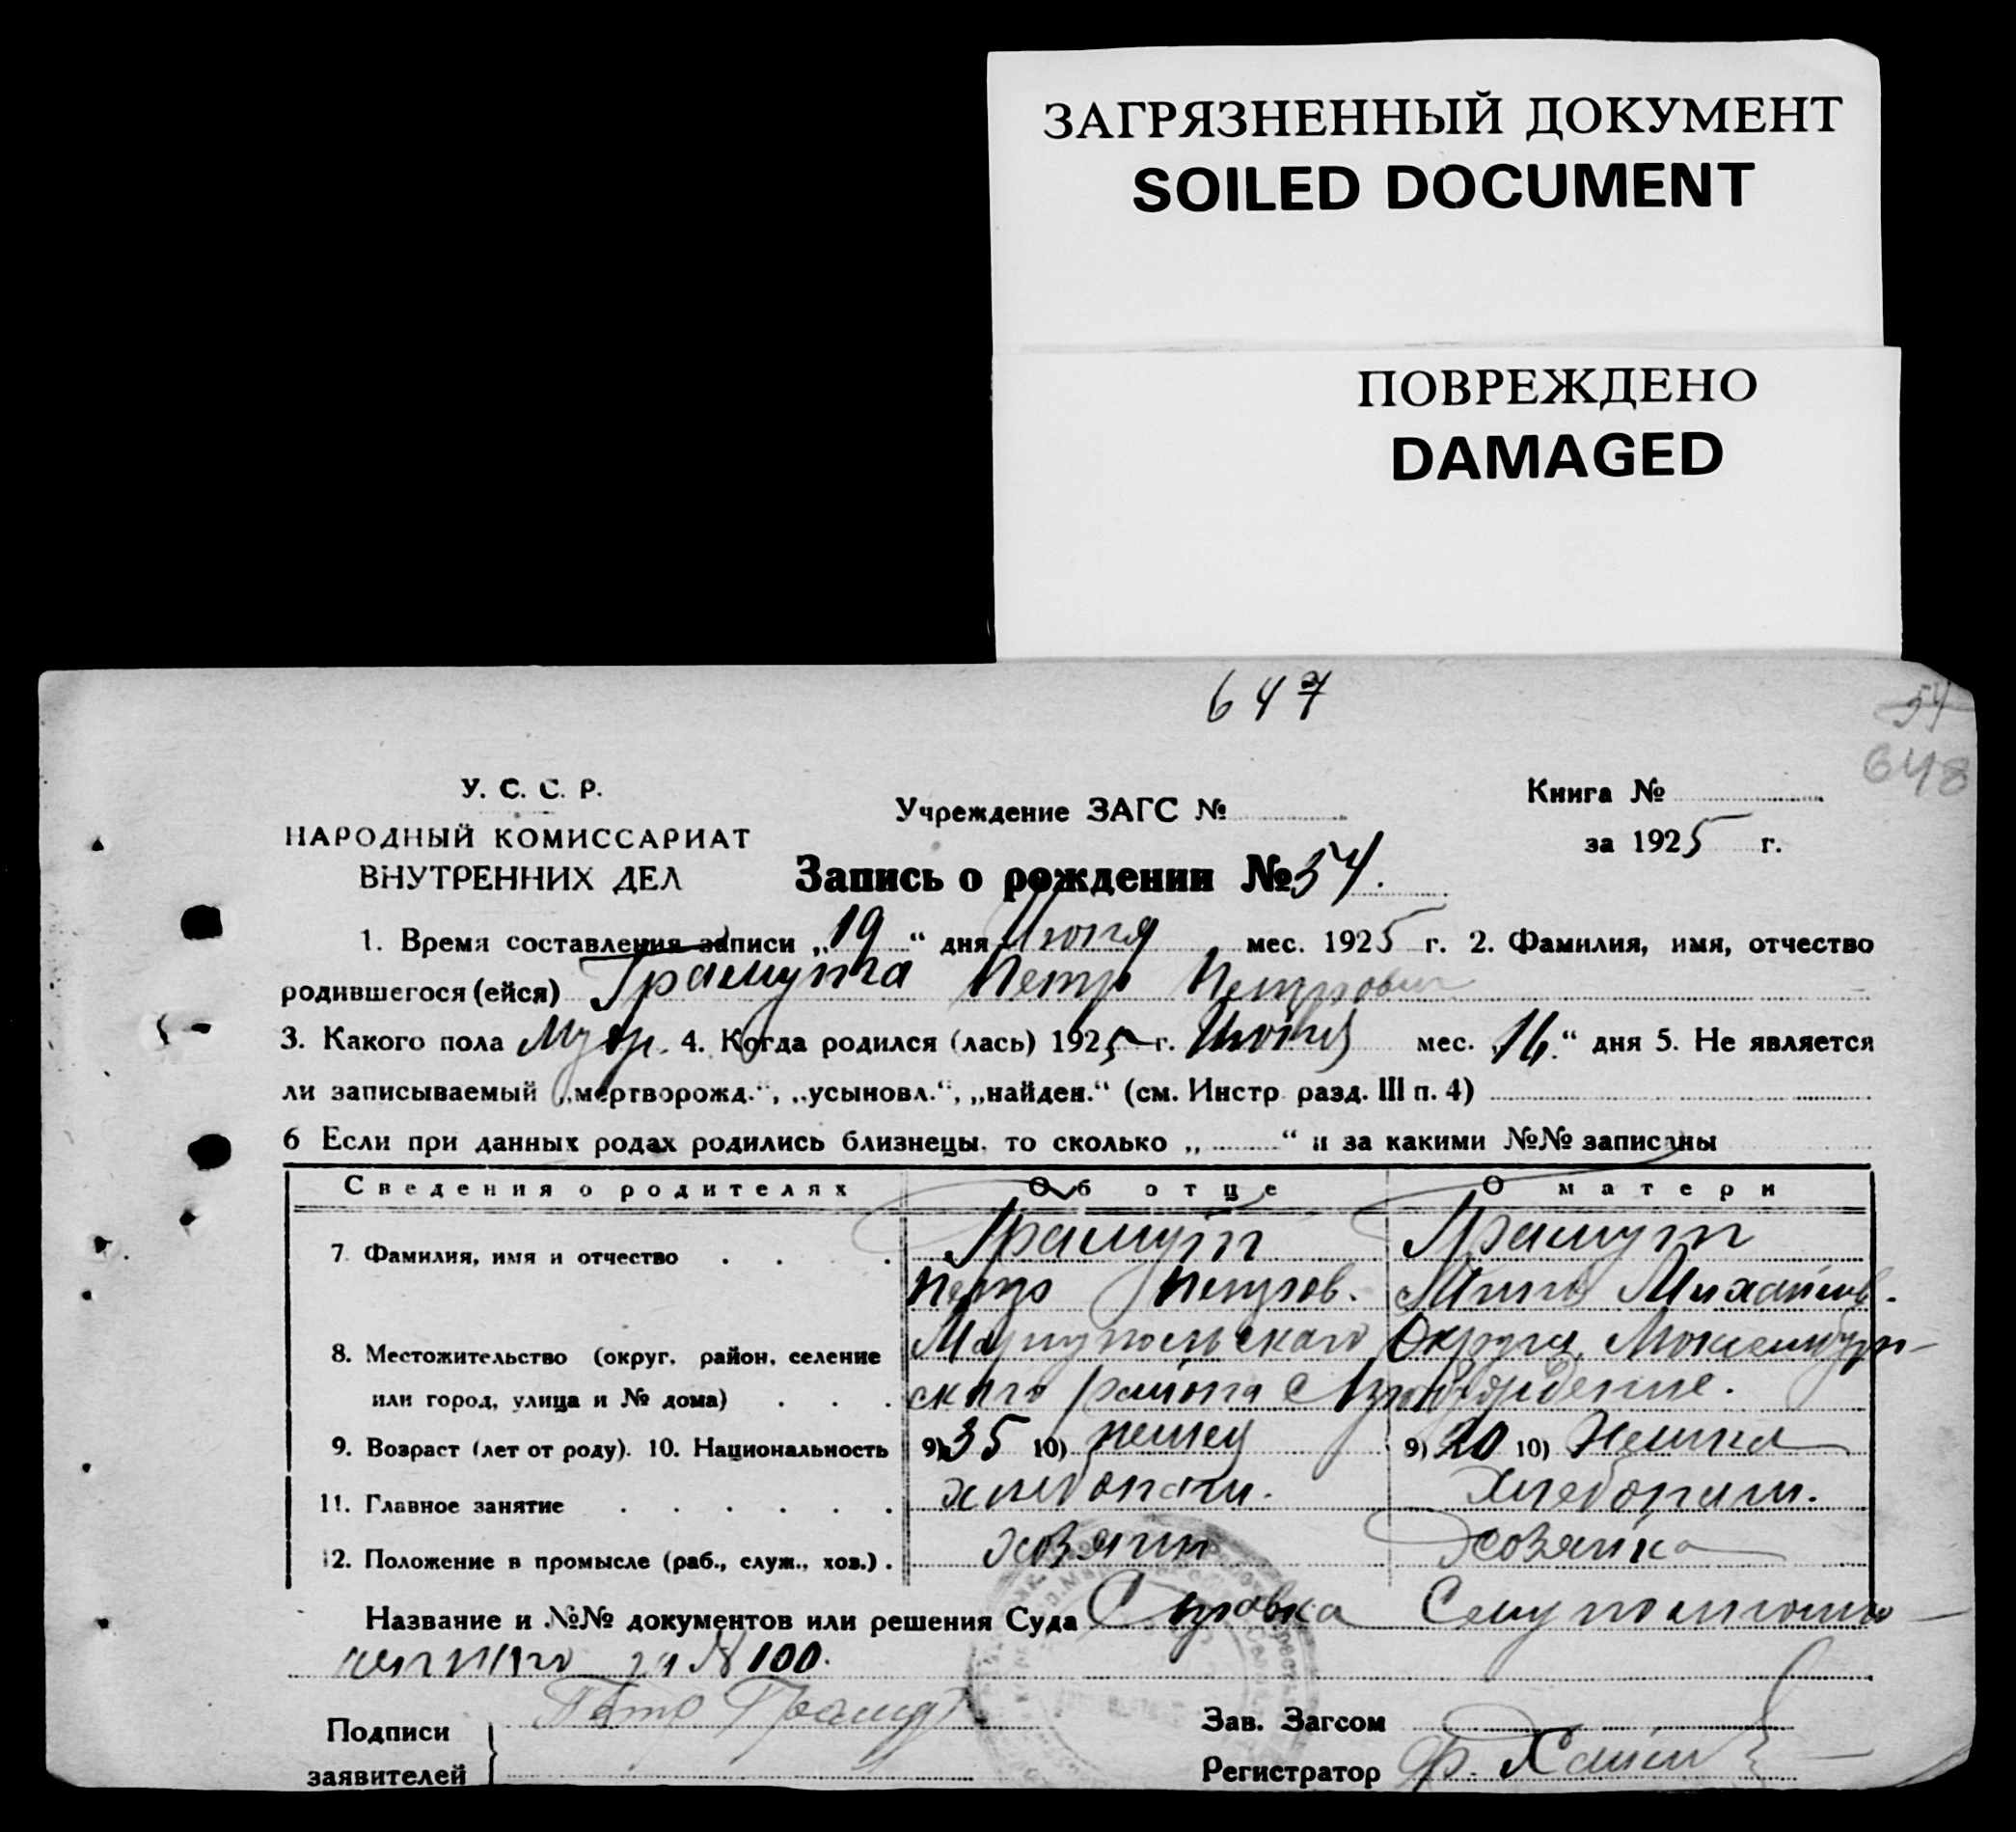 ЗАГРЯЗНЕННЫЙ ДОКУМЕНТ
SOILED DOCUMENT
ПОВРЕЖДЕНО
DAMAGED
647
54
648
У. С. С. Р.
НАРОДНЫЙ КОМИССАРИАТ
ВНУТРЕННИХ ДЕЛ
Учреждение ЗАГС №
Книга №
за 1925 г.
Запись о рождении № 54.
1. Время составления записи „19“ дня Июня мес. 1925 г. 2. Фамилия, имя, отчество
родившегося (ейся) Петр Петрович
3. Какого пола Муж. 4. Когда родился (лась) 1925 г. Июня мес. „16.“ дня 5. Не является
ли записываемый „мертворожд.“, „усыновл.“, „найден.“ (см. Инстр. разд. III п. 4)
6 Если при данных родах родились близнецы, то сколько „ “ и за какими №№ записаны
Сведения о родителях Об отце О матери
7. Фамилия, имя и отчество Грамут Грамут
Петр Петров. Михайлов.
8. Местожительство (округ, район, селение Мариупольского Округа,
или город, улица и № дома) ского района с
9. Возраст (лет от роду). 10. Национальность 9) 35 10) немец 9) 20 10) Немка
11. Главное занятие хлебопаш. хлебопаш.
12. Положение в промысле (раб., служ., хоз.) хозяин хозяйка
Название и №№ документов или решения Суда Справка
за № 100.
Подписи
заявителей
Петр Грамут
Зав. Загсом
Регистратор